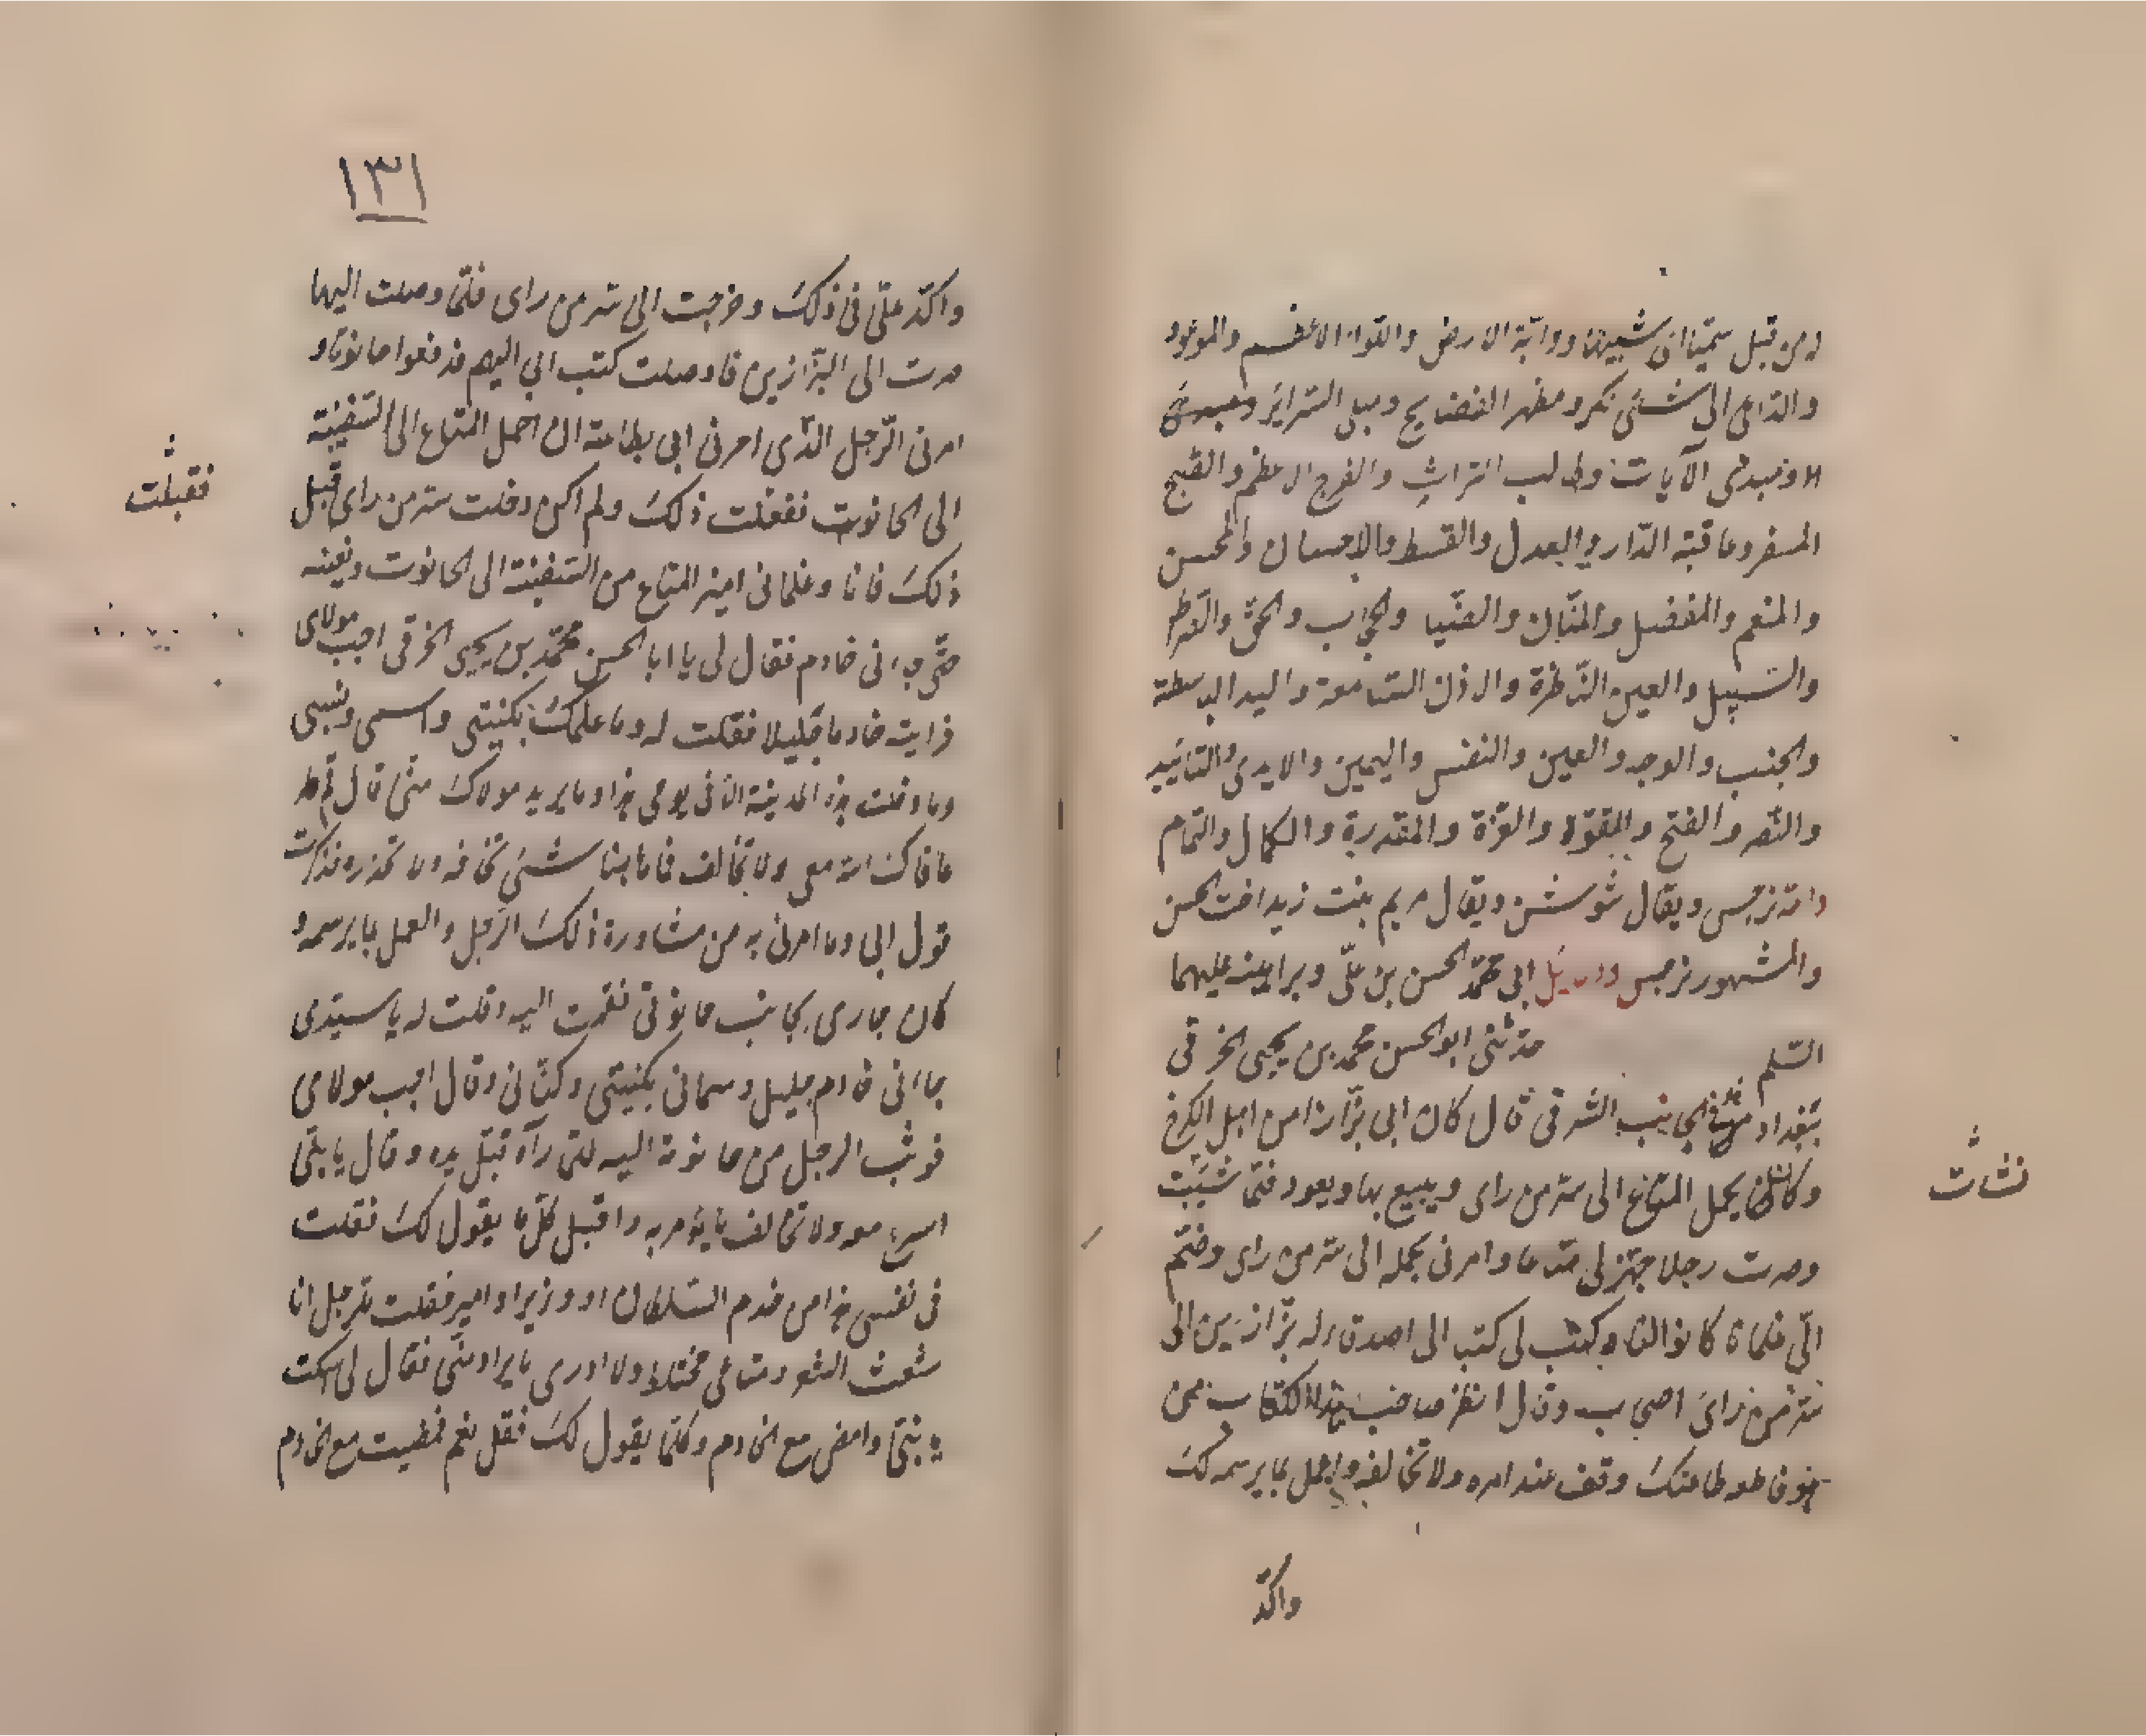 من قبل سميا اى شبيها ودابة الارض واللواء الاعظم والموعود
والداعى الى شىء نكر ومظهر الفضايح ومبلى السراير
ومبدئ الآيات وطالب التراث والفرج الاعظم والصبح
المسفر وعاقبة الدار والعدل والقسط والاحسان والمحسن
والمنعم والمفضل والمنان والضيا والحجاب والحق والصراط
والسبيل والعين الناظرة والاذن السامعة واليد الباسطة
والجنب والوجه والعين والنفس واليمين والايدى والتاييد
والنصر والفتح والقوة والعزة والمقدرة والكمال والتمام
وامه نرجس ويقال سوسن ويقال مريم بنت زيد اخت حسن
والمشهور نرجس ودلايل ابى محمد الحسن بن علي وبراهينه عليهما
السلم حدثنى ابو الحسن محمد بن يحيى الخرقى
ببغداد فى الجانب الشرقى قال كان ابى بزازا من اهل الكرخ
وكان يحمل المتاع الى سر من راى ويبيع بها ويعود فلما شببت
نشات
وصرت رجلا جهز لى متاعا وامرنى بحمله الى سر من راى وضم
الى غلمانا كانوا لنا وكتب لى كتبا الى اصدقاء له بزازين الى
سر من راى اصحاب وقال انظر صاحب هذا الكتاب من
هو فاطعه طاعتك وقف عند امره ولا تخالفه واعمل بما يرسمه لك
واكد
١٣١
واكد على فى ذلك وخرجت الى سر من راى فلما وصلت اليها
صرت الى البزازين فاوصلت كتب ابى اليهم فدفعوا حانوتا و
امرنى الرجل الذى امرنى ابى بطاعته ان احمل المتاع الى السفينة
الى الحانوت ففعلت ذلك ولم اكن دخلت سر من راى قبل
فقبلت
ذلك فانا وغلمانى اميز المتاع من السفينة الى الحانوت ونعينه
حتى جاءنى خادم فقال لى يا ابا الحسن محمد بن يحيى الخرقى اجب مولاى
فرايته خادما جليلا فقلت له وما علمك بكنيتى واسمى ونسبى
وما دخلت هذه المدينة الا فى يومى هذا وما يريد مولاك منى قال قم
عافاك الله معى ولا تخالف فما هنا شىء تخافه ولا تحذره فذكرت
قول ابى وما امرنى به من مشاورة ذلك الرجل والعمل بما يرسمه و
كان جارى بجانب حانوتى فقمت اليه وقلت له يا سيدى
جاءنى خادم جليل وسمانى بكنيتى وكنانى وقال اجب مولاى
فوثب الرجل من حانوته اليه لما رآه قبل يده وقال يا بنى
اسرع معه ولا تخالف ما يؤمر به واقبل كل ما يقول لك فقلت
فى نفسى هذا من خدم السلطان او وزير او امير فقلت للرجل انا
شعث الشعر ومتاعى مختلط ولا ادرى ما يراد منى فقال لى اسكت
يا بنى وامض مع الخادم وكلما يقول لك فقل نعم فمضيت مع الخادم